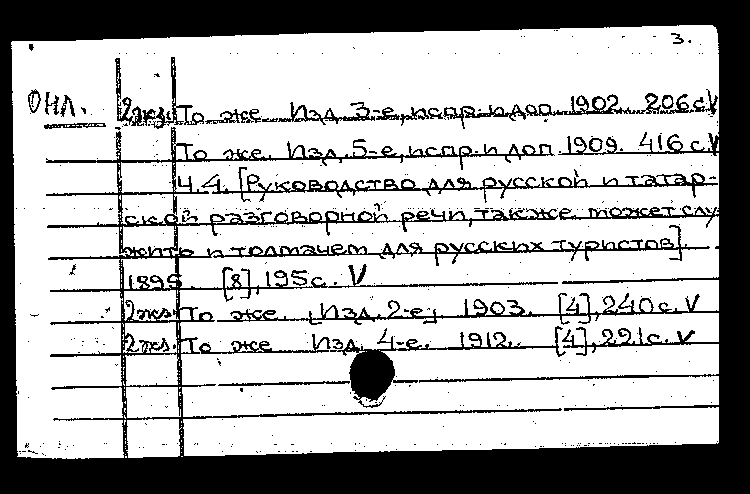 3.
ОНЛ. 2экз. То же. Изд. 3-е, испр. и доп. 1902. 206 с. V
То же. Изд. 5-е, испр. и доп. 1909. 416 с. V
Ч.4. [Руководство для русской и татар-
ской разговорной речи, также может слу-
жить и толмачем для русских туристов].
1895. [8], 195 с. V
2экз. То же. [Изд. 2-е]. 1903. [4], 240 с. V
2экз. То же Изд. 4-е. 1912. [4], 221 с. V